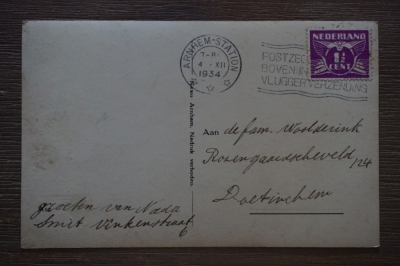 ARNHEM-STATION
4 XII
1934
POSTZE
BOVEN
VLUGGER VERZENDING
NEDERLAND
CENT
Arnhem. Nadruk verboden.
Aan de fam. Woolderink
Rozengaardscheveld 124
Doetinchem
groeten van Nada
Smit Vinkenstraat